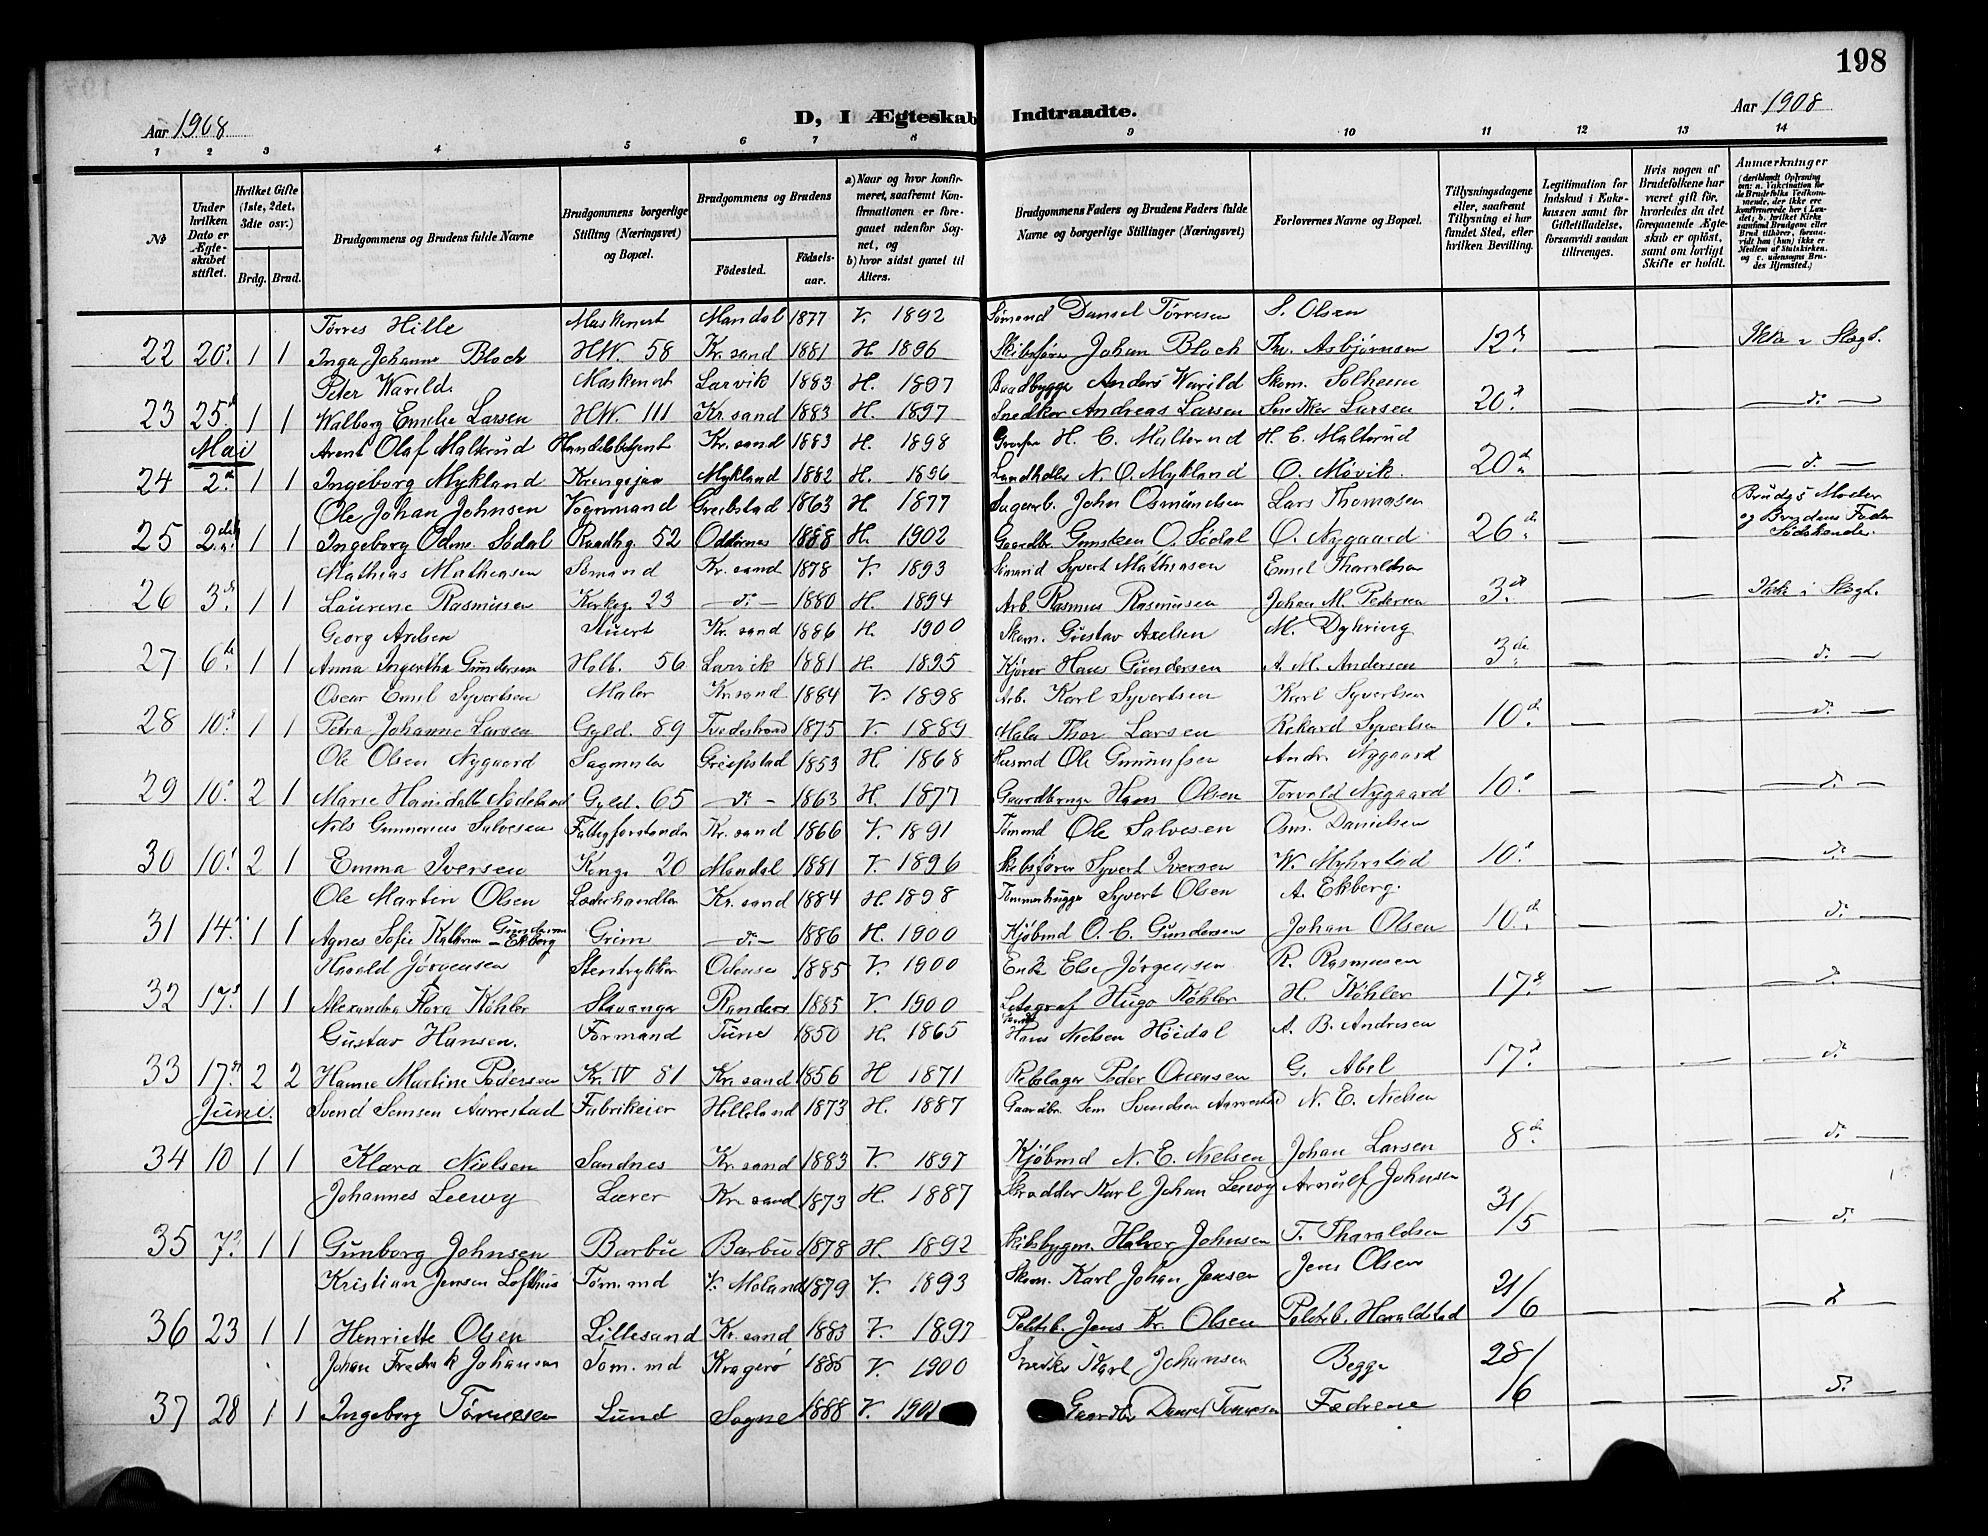 198
Aar 1908
D, I Ægteskab Indtraadte.
Aar 1908
1 2 3 4 5 6 7 8 9 10 11 12 13 14
No
Under hvilken Dato er Ægteskabet stiftet.
Hvilket Gifte (1ste, 2det, 3die osv.)
Brdg. Brud.
Brudgommens og Brudens fulde Navne
Brudgommens borgerlige Stilling (Næringsvei) og Bopæl.
Brudgommens og Brudens
Fødested.
Fødselsaar.
a) Naar og hvor konfirmeret, saafremt Konfirmationen er foregaaet udenfor Sognet, og
b) hvor sidst gaaet til Alters.
Brudgommens Faders og Brudens Faders fulde Navne og borgerlige Stillinger (Næringsvei)
Forlovernes Navne og Bopæl.
Tillysningsdagene eller, saafremt Tillysning ei har fundet Sted, efter hvilken Bevilling.
Legitimation for Indskud i Enkekassen samt for Giftetilladelse, forsaavidt saadan tiltrænges.
Hvis nogen af Brudefolkene har været gift før, hvorledes da det foregaaende Ægteskab er opløst, samt om lovligt Skifte er holdt.
Anmærkninger (deriblandt Oplysning om: a. Vakcination for de Brudefolks Vedkommende, der ikke ere konfirmerede her i Landet; b. hvilket Kirkesamfund Brudgom eller Brud tilhører, forsaavidt han (hun) ikke er Medlem af Statskirken, og c. udensogns Brudes Hjemsted.)
Tørres Hille Maskenist Mandal 1877 V. 1892 Sømand Daniel Tørresen S. Olsen
22 20. 1 1 Inga Johanne Bloch HW. 58 Kr.sand 1881 H. 1896 Skibsfører Johan Bloch Th. Asbjørnsen 12. — — Ikke i Slægt.
Peter Warild. Maskenist Larvik 1883 H. 1897 Baadbygger Anders Warild Skom. Solheim
23 25 1 1 Walborg Emilie Larsen HW. 111 Kr.sand 1883 H. 1897 Snedker Andreas Larsen Snedker Larsen 20. — — — d. —
Mai Arent Olaf Malterud Handelsbetjent Kr.sand 1883 H. 1898 H. C. Malterud H. C. Malterud
24 2. 1 1 Ingeborg Mykland Krongsjaa Mykland 1882 H. 1896 Landhdler N. O. Mykland O. Møvik. 20 — — — d. —
Ole Johan Johnsen Vognmand Greibstad 1863 H. 1877 Sagarb. John Osmundsen Lars Thomasen Brudgs Moder
25 2den 1 1 Ingeborg Odine Sødal Raadhg. 52 Oddernes 1888 H. 1902 Gaardbr. O. Sødal O. Nygaard 26. — — og Brudens Fader Sødskende.
Mathias Mathiasen Sømand Kr.sand 1878 V. 1893 Sømand Syvert Mathiasen Emil Tharaldsen
26 3. 1 1 Laurine Rasmusen Kirkeg. 23 — d. — 1880 H. 1894 Arb. Rasmus Rasmusen Johan M. Pedersen 3. — — Ikke i Slægt.
Georg Axelsen Stuert Kr.sand 1886 H. 1900 Skom. Gustav Axelsen M. Dyhring
27 6. 1 1 Anna Ingertha Gundersen Holb. 56 Larvik 1881 H. 1895 Kjører Hans Gundersen A. M. Andersen 3. — — — d. —
Oscar Emil Syvertsen Maler Kr.sand 1884 V. 1898 Arb. Karl Syvertsen Karl Syvertsen
28 10. 1 1 Petra Johanne Larsen Gyld. 89 Tvedestrand 1875 V. 1889 Maler Thor Larsen Rikard Syvertsen 10. — — — d. —
Ole Olsen Nygaard Sagmester Greipstad 1853 H. 1868 Husmd Ole Gunnufsen Andr. Nygaard
29 10. 2 1 Marie Nodeland Gyld. 65 — d. — 1863 H. 1877 Gaardbruger Hans Olsen Torvald Nygaard 10. — — — d. —
Nils Gunnerius Salvesen Fattigforstander Kr.sand 1866 V. 1891 Tømmd Ole Salvesen Osm. Danielsen
30 10. 2 1 Emma Iversen Konge 20 Mandal 1881 V. 1896 Skibsfører Syvert Iversen W. Myhrstad 10. — — — d. —
Ole Martin Olsen Læderhandler Kr.sand 1884 H. 1898 Tømmerhugger Syvert Olsen A. Ekberg.
31 14. 1 1 Agnes Sofie Kathrine Gundersen — Ekberg Grim — d. — 1886 H. 1900 Kjøbmd O. C. Gundersen Johan Olsen 10. — — — d. —
Harald Jørgensen Stentrykker Odense 1885 V. 1900 Enke Else Jørgensen R. Rasmusen
32 17. 1 1 Alexandra Flora Köhler Stavanger Randers 1885 V. 1900 Hugo Köhler H. Köhler 17. — — — d. —
Gustav Hansen. Formand Tune 1850 H. 1865 Hans Nielsen Höidal A. B. Andresen
33 17. 2 2 Hanne Martine Pedersen Kr. IV 81 Kr.sand 1856 H 1871 Rebslager Peder G. Abel 17. — — d. —
Juni. Svend Semsen Aarrestad Fabrikeier Helleland 1873 H. 1887 Gaardbr. Sem Svendsen Aarrestad N. E. Nielsen
34 10 1 1 Klara Nielsen Sandnes Kr.sand 1883 V. 1897 Kjøbmd N. E. Nielsen Johan Larsen 8. — — — d. —
Johannes Leewy Lærer Kr.sand 1873 H. 1887 Skrædder Karl Johan Leewy Arnulf Johnsen
35 7. 1 1 Gunborg Johnsen Barbu Barbu 1878 H. 1892 Skibsbygm. Halvor Johnsen T. Tharaldsen 31/5 — — — d. —
Kristian Jensen Lofthus Tøm.md V. Moland 1879 V. 1893 Skom. Karl Johan Jensen Jens Olsen
36 23 1 1 Henriette Olsen Lillesand Kr.sand 1883 V. 1897 Politib. Jens Kr. Olsen Politib. Haraldstad 21/6 — — —
Johan Fredrik Johansen Tøm.md Kragerø 1885 V. 1900 Snedker Karl Johansen Begge 28/6
37 28 1 1 Ingeborg Lund Søgne 1888 V. 1901 Gaardbr Daniel Fædrene — — — d. —